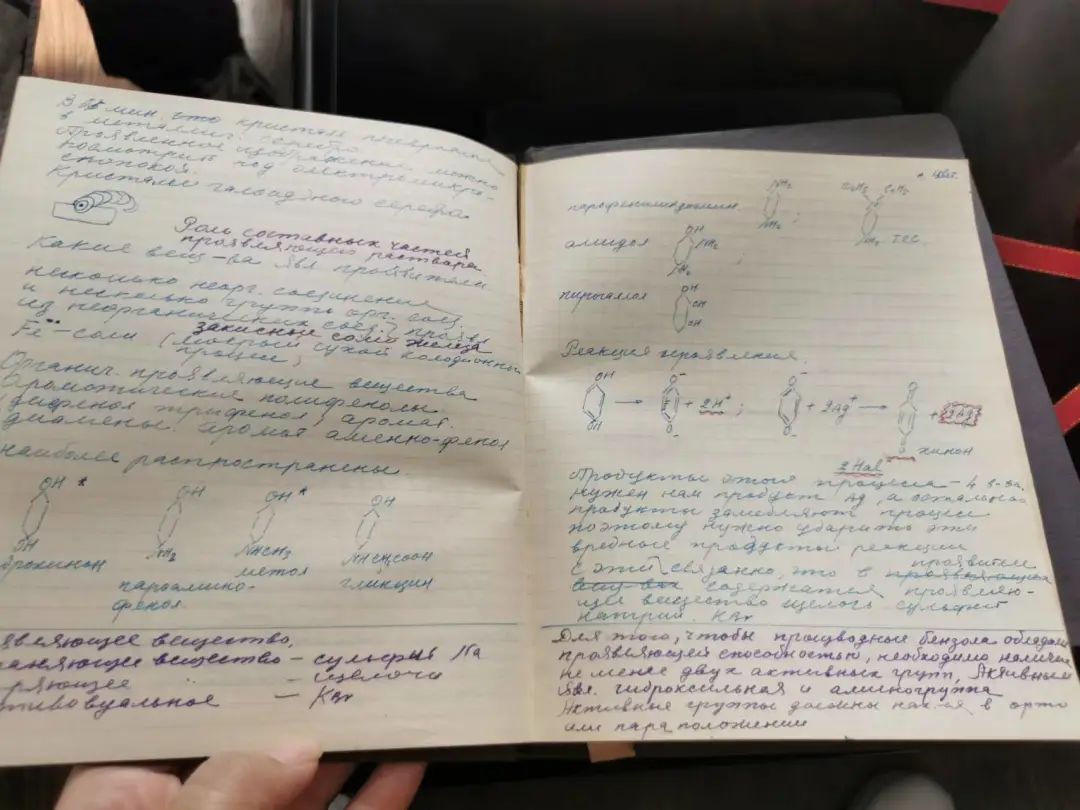 мин. что кристалл
в металлич. серебро.
Проявленное изображение можно
посмотреть под электромикро-
скопом.
Кристаллы галоидного серебра.
Роль составных частей
проявляющего раствора
Какие вещ-ва явл проявители
несколько неорг. соединений
и несколько групп орг. соед.
из неорганических соед.
закисные соли железа
Fe – соли (мокрый сухой коллодионный
процесс)
Органич. проявляющие вещества
Ароматические полифенолы
(дифенол трифенол, аромат.
диамины, аромат амино-фенол
наиболее распространены.
OH * OH OH * OH
OH NH₂ NHCH₃ NHCH₂COOH
дрохинон метол глицин
парoамино-
фенол
являющее вещество,
вещество – сульфит Na
ряющее – щелочи
тивовуальное – KBr
парафенилендиамин NH₂ NH₂ ; C₂H₅ C₂H₅ NH₂ ТСС.
амидол OH NH₂ NH₂
пирогаллол OH OH OH
Реакция проявления.
OH OH → O⁻ O⁻ + 2H⁺ ; O⁻ O⁻ + 2Ag⁺ → O O + 2Ag
хинон
2 Hal
Продукты этого процесса – 4 в-ва.
Нужен нам продукт Ag, а остальные
продукты замедляют процесс
поэтому нужно убирать эти
вредные продукты реакции
проявителе
С этим связанно, что в проявляющем
содержатся проявляю-
щее вещество щелочь сульфит
натрий. KBr
Для того, чтобы производные бензола обладали
проявляющей способностью, необходимо наличие
не менее двух активных групп, Активным
явл. гидроксильная и аминогруппа
Активные группы должны нах-ся в орто
или пара положении